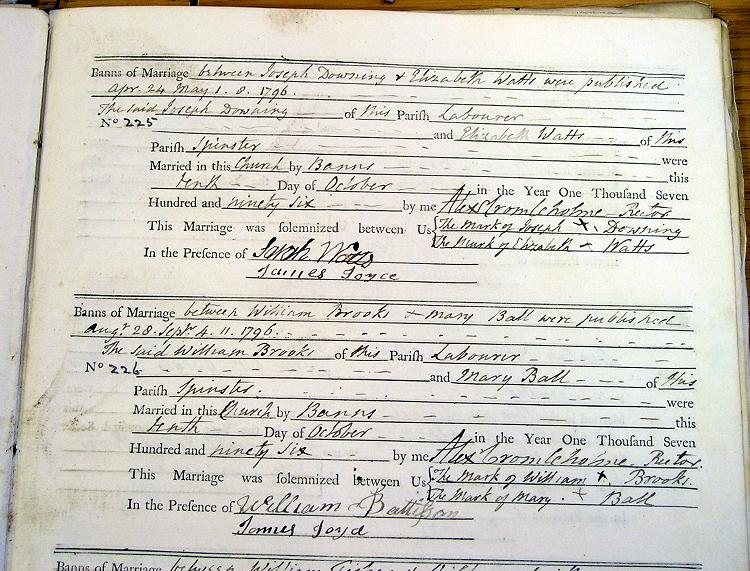 Banns of Marriage between Joseph Downing & Elizabeth Watts were published
Apr. 24 May 1. 8. 1796.
The said Joseph Downing of this Parish Labourer
No 225
and Elizabeth Watts of this
Parish Spinster
were
Married in this Church by Banns this
tenth Day of October in the Year One Thousand Seven
Hundred and ninety six by me Alex Cromleholme Rector
This Marriage was solemnized between Us {The Mark of Joseph + Downing
The Mark of Elizabeth + Watts
In the Presence of Sarah Watts
James Joyce
Banns of Marriage between William Brooks & Mary Ball were published
Augt 28. Septr 4. 11. 1796.
The said William Brooks of this Parish Labourer
No 226
and Mary Ball of this
Parish Spinster.
were
Married in this Church by Banns this
tenth Day of October in the Year One Thousand Seven
Hundred and ninety six by me Alex Cromleholme Rector.
This Marriage was solemnized between Us {The Mark of William + Brooks.
The Mark of Mary. + Ball
In the Presence of William Battison
James Joyce
Banns of Marriage between William